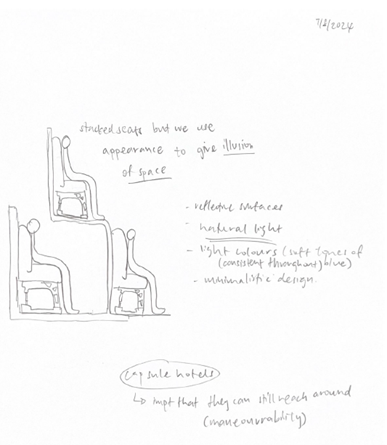 7/8/2024
stacked seats but we use
appearance to give illusion
of space
- reflective surfaces
- natural light
- light colours (soft tones of
(consistent throughout) blue)
- minimalistic design.
capsule hotels
↳ impt that they can still reach around
(maneouvrability)